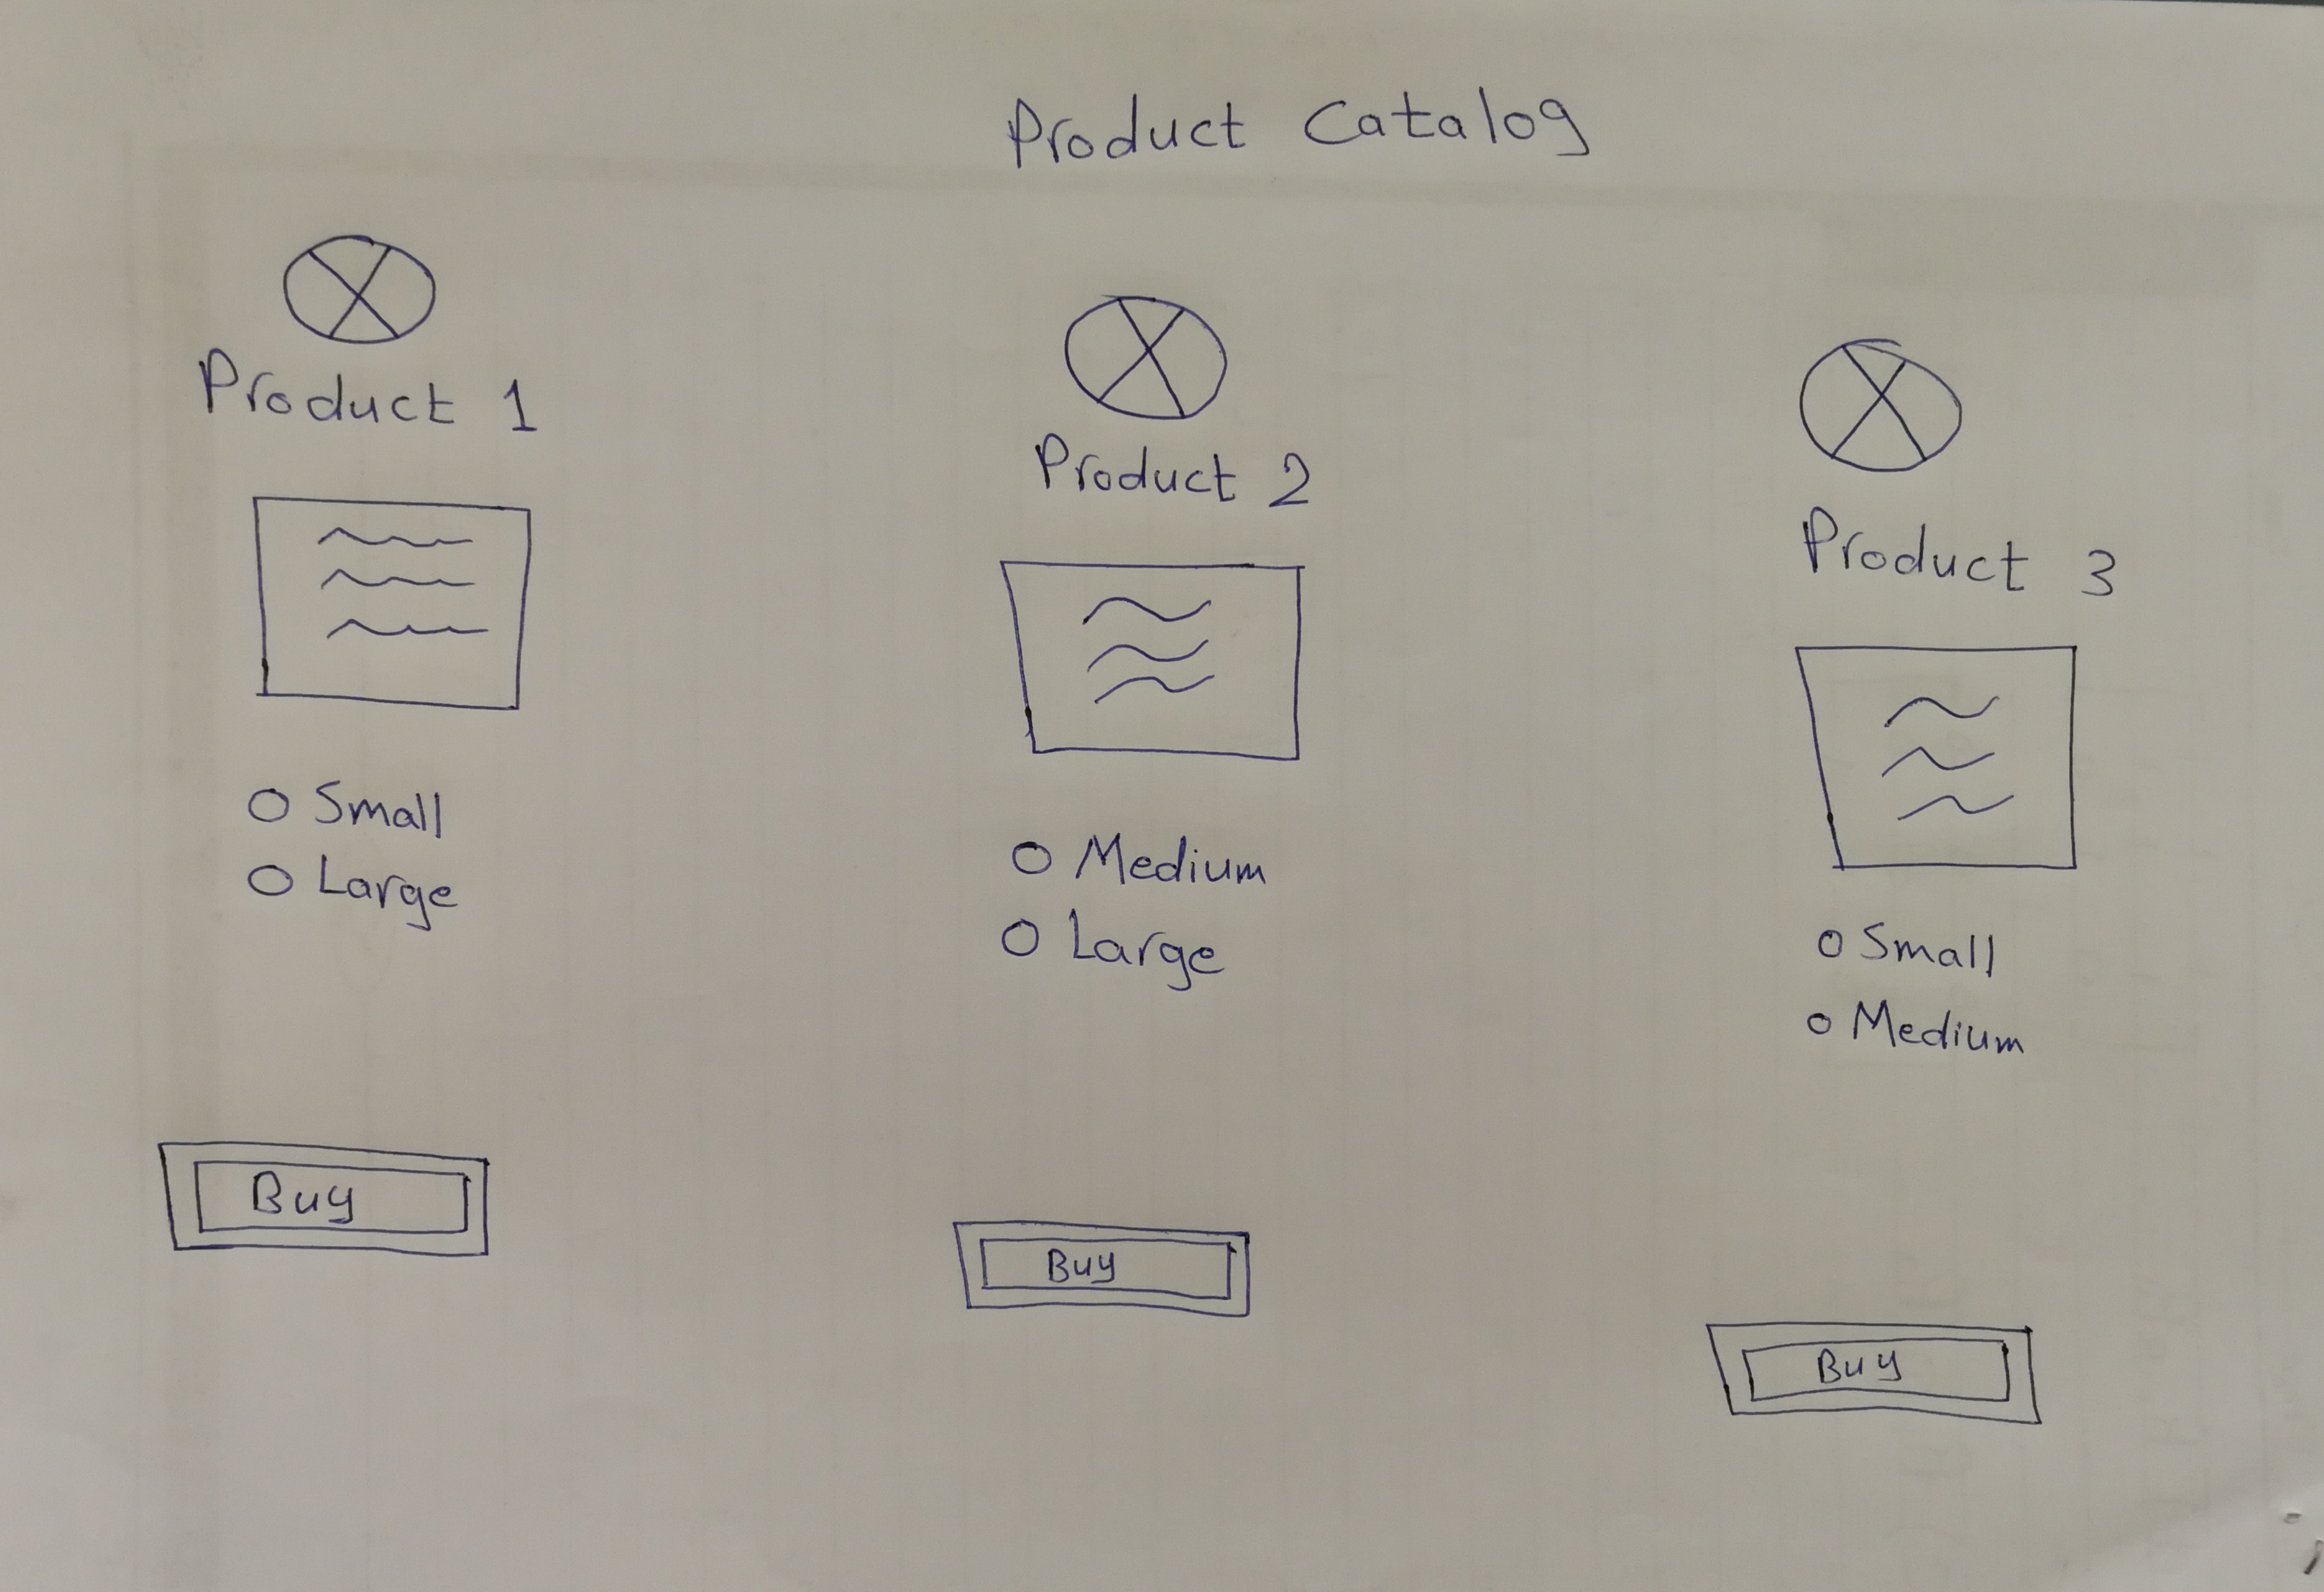 Product Catalog
Product 1
Small
Large
Buy
Product 2
Medium
Large
Buy
Product 3
Small
Medium
Buy